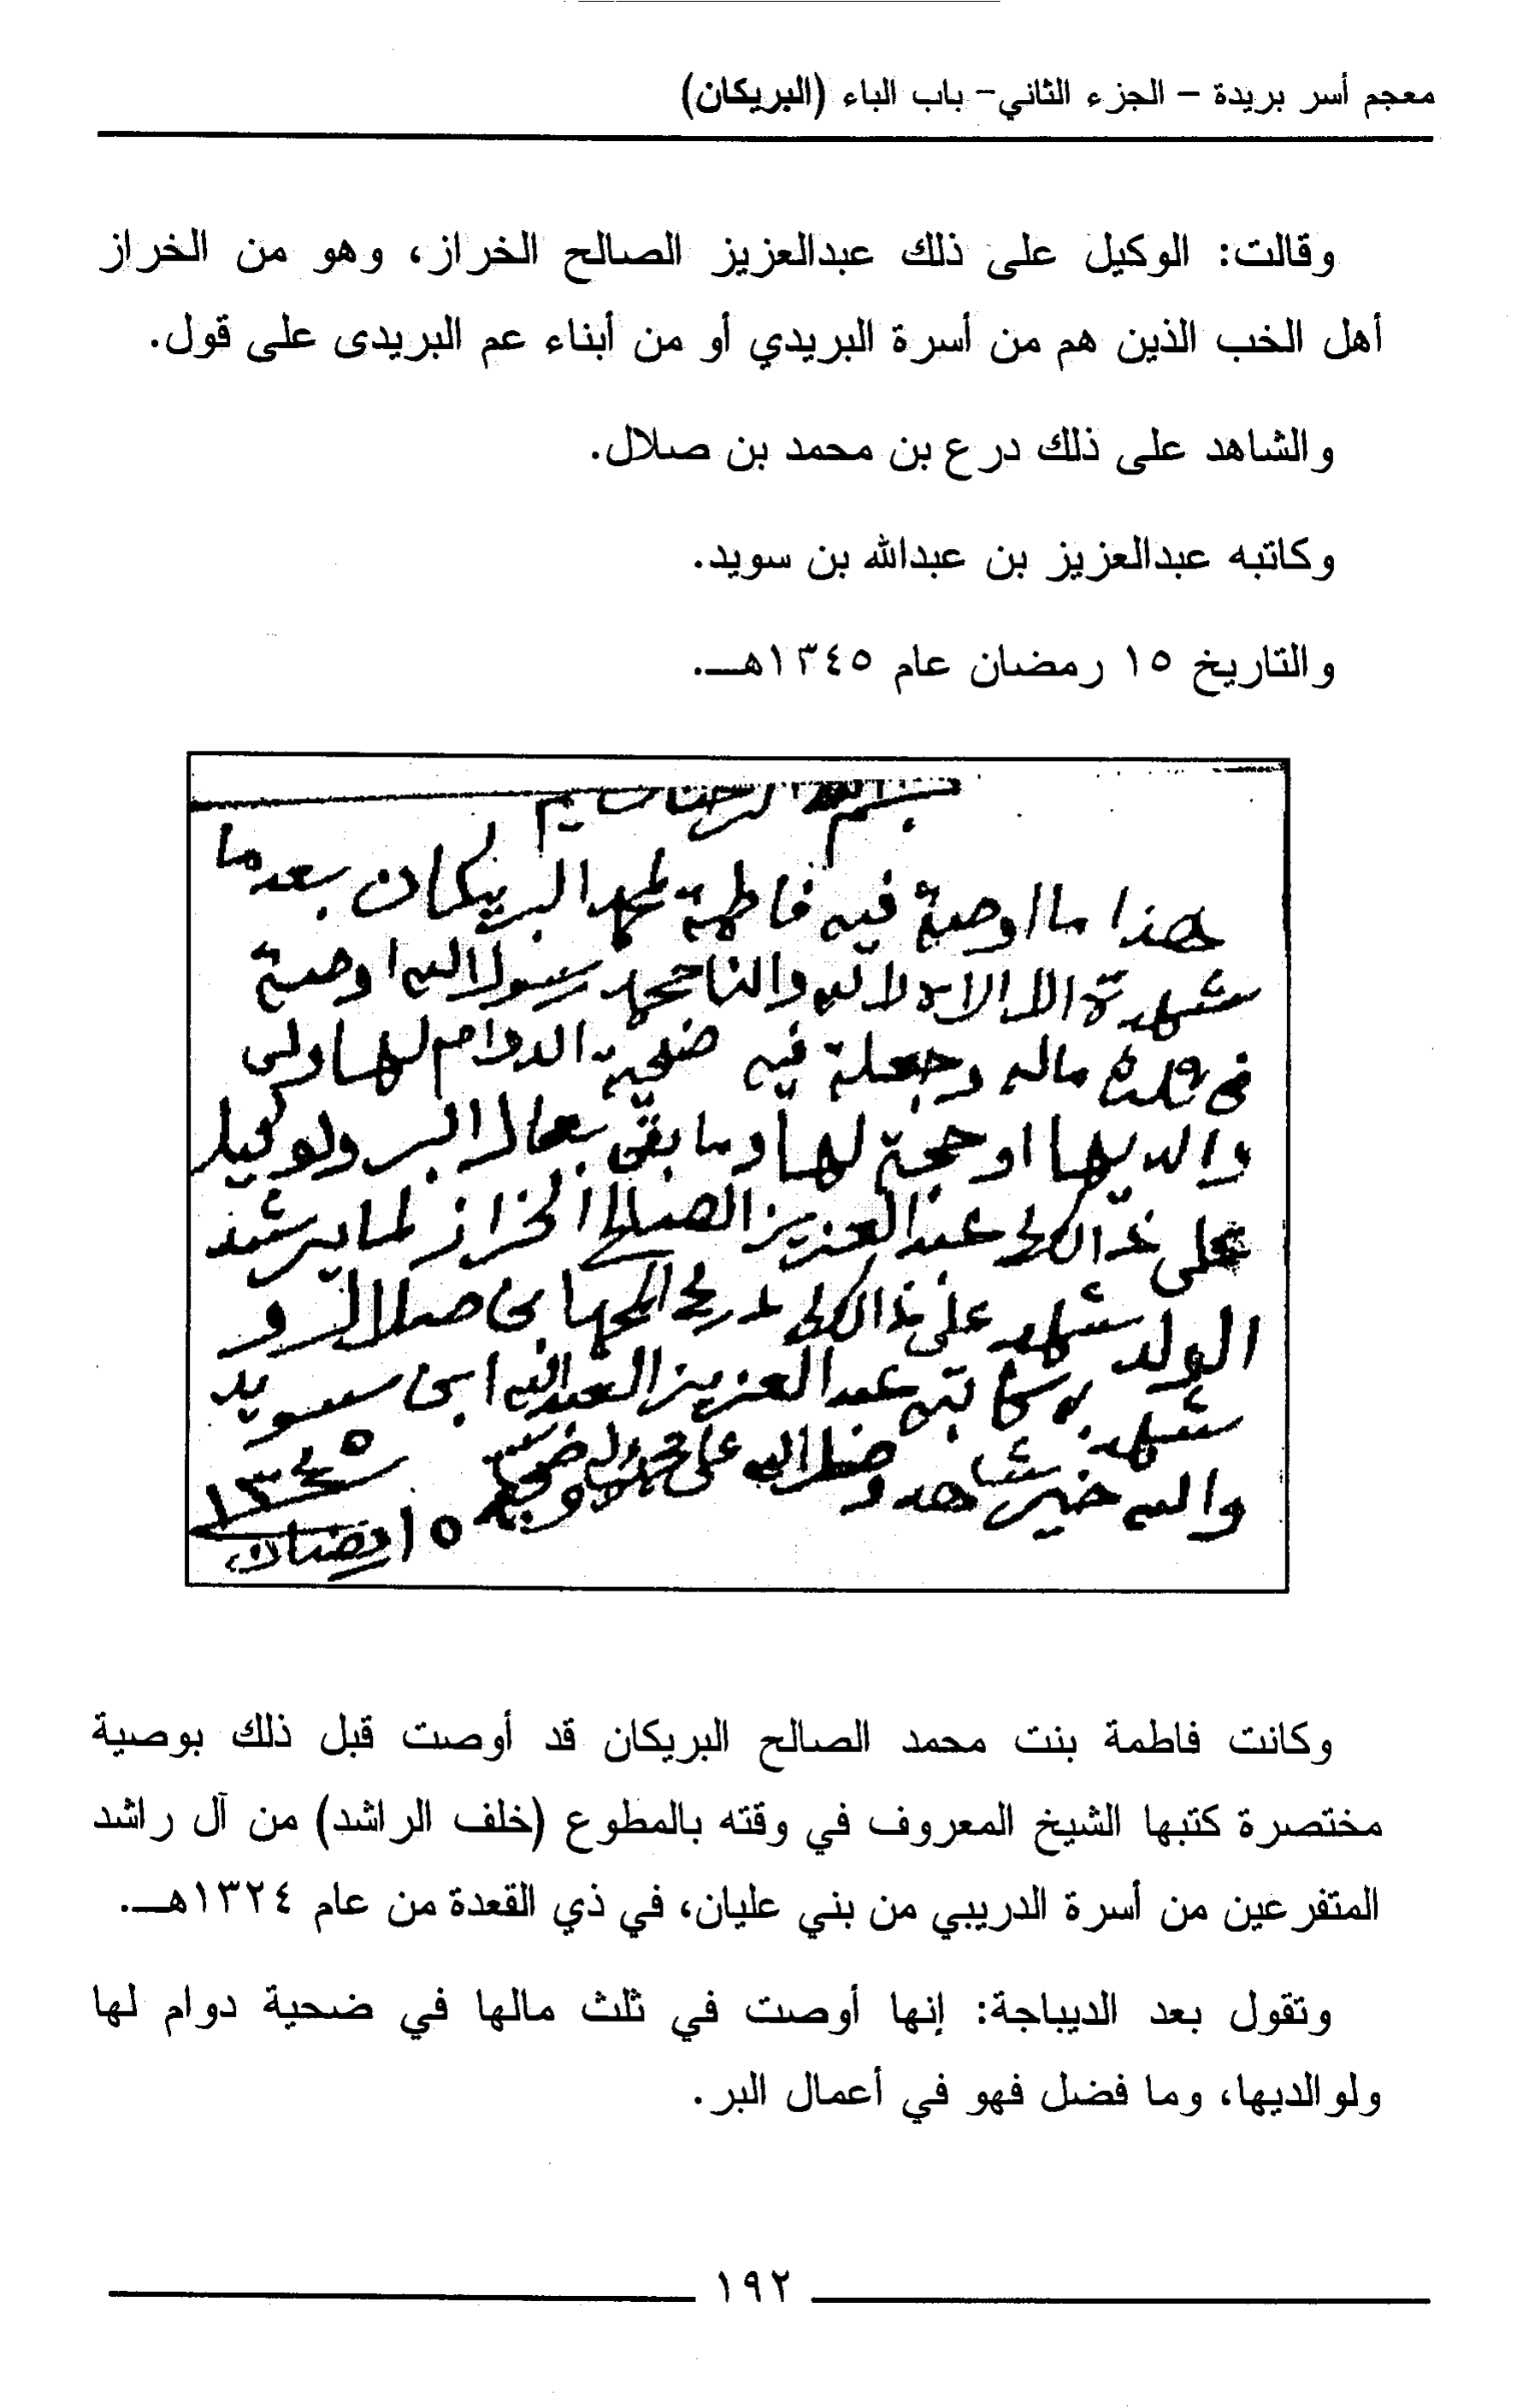 معجم أسر بريدة – الجزء الثاني– باب الباء (البريكان)
وقالت: الوكيل على ذلك عبدالعزيز الصالح الخراز، وهو من الخراز
أهل الخب الذين هم من أسرة البريدي أو من أبناء عم البريدى على قول.
والشاهد على ذلك درع بن محمد بن صلال.
وكاتبه عبدالعزيز بن عبدالله بن سويد.
والتاريخ ١٥ رمضان عام ١٣٤٥هـ.
بسم الله الرحمن الرحيم
هذا ما اوصة فيه فاطمة لمحمد البريكان بعد ما
شهدة الا الاه لا الله وانا محمد رسول الله اوصة
في ثلث ماله وجعلة فيه ضحية الدوام لها ولى
والديها او حجة لها وما بقى بعمال البر ولوكيل
على ذالك عبد العزيز الصالح الخراز لما يرشد
الولد شهد على ذالك درع المحمد ابن صلال و
شهد به كاتبه عبد العزيز العبد الله ابن سويد
والله خير شاهد وصلى الله على محمد واله وصحبه
١٣٤٥
١٥ رمضان
وكانت فاطمة بنت محمد الصالح البريكان قد أوصت قبل ذلك بوصية
مختصرة كتبها الشيخ المعروف في وقته بالمطوع (خلف الراشد) من آل راشد
المتفرعين من أسرة الدريبي من بني عليان، في ذي القعدة من عام ١٣٢٤هـ.
وتقول بعد الديباجة: إنها أوصت في ثلث مالها في ضحية دوام لها
ولوالديها، وما فضل فهو في أعمال البر.
١٩٢